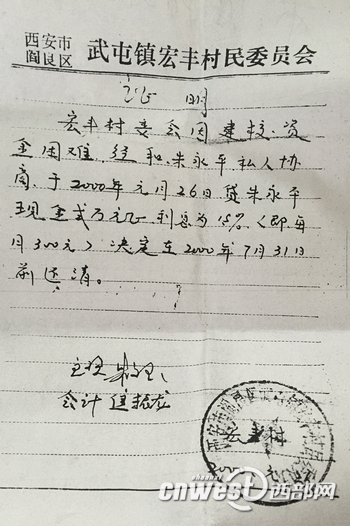 西安市
阎良区
武屯镇宏丰村民委员会
证明
宏丰村委会因建校资
金困难,经和朱永平私人协
商,于2000年元月26日贷朱永平
现金贰万元 利息为15‰(即每
月300元)决定在2000年7月31日
前还清。
会计
宏丰村
cnwest 西部网